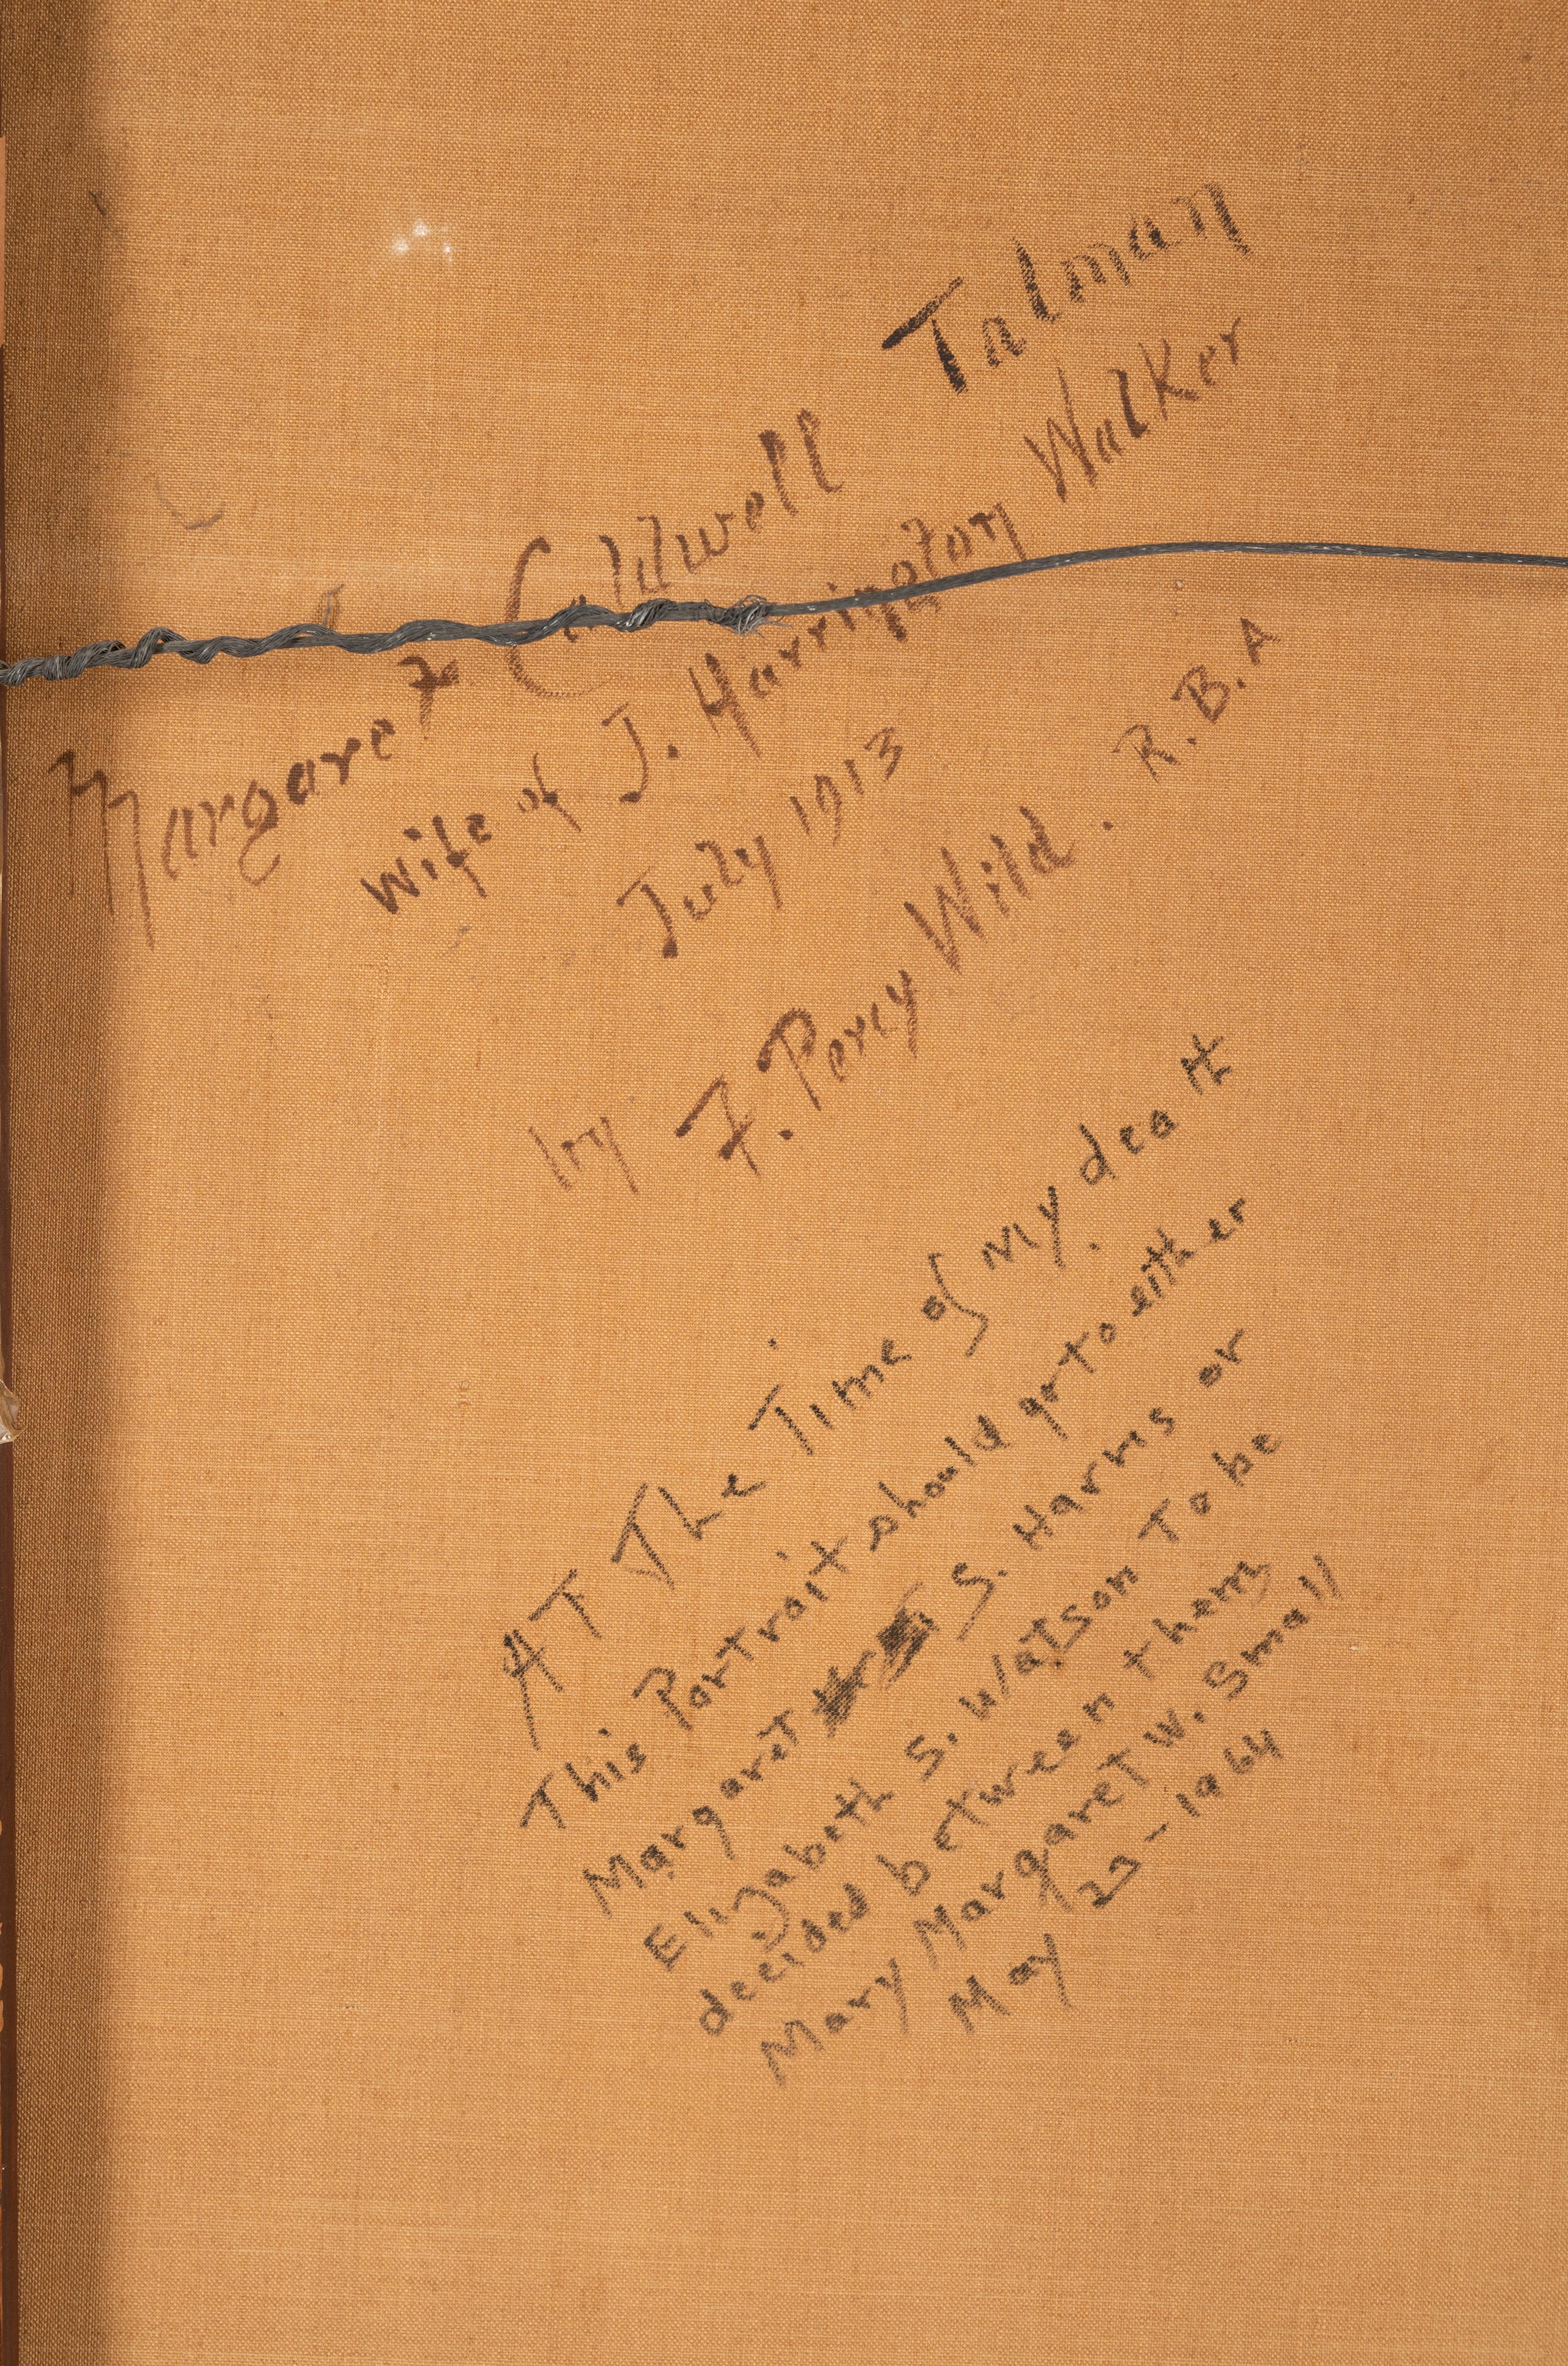 Margaret Caldwell Talman
wife of J. Harrington Walker
July 1913
by F. Percy Wild. R.B.A
AT The Time of My death
This Portrait should go to either
Margaret S. Harris or
Elizabeth S. Watson To be
decided between them
Mary Margaret W. Small
May 27-1964